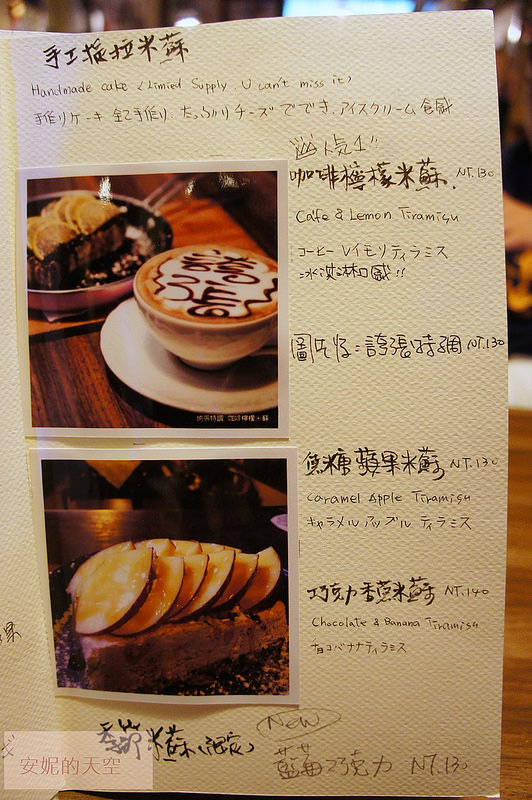 手工提拉米蘇
Handmade cake (Limied Supply. U can't miss it)
手作りケーキ 全て手作り. たっぷりチーズでできアイスクリーム食感
人気1!!
咖啡檸檬米蘇. NT.130
Cafe & Lemon Tiramisu
コーヒー レイモリティラミス
冰淇淋口感!!
誇張
誇張特調 咖啡檸檬米蘇
圖片後:誇張特調 NT.130
焦糖蘋果米蘇 NT.130
Caramel Apple Tiramisu
キャラメル アップル ティラミス
巧克力香蕉米蘇 NT.140
Chocolate & Banana Tiramisu
チョコバナナティラミス
New
季節米蘇(限定)
藍莓巧克力 NT.130
安妮的天空